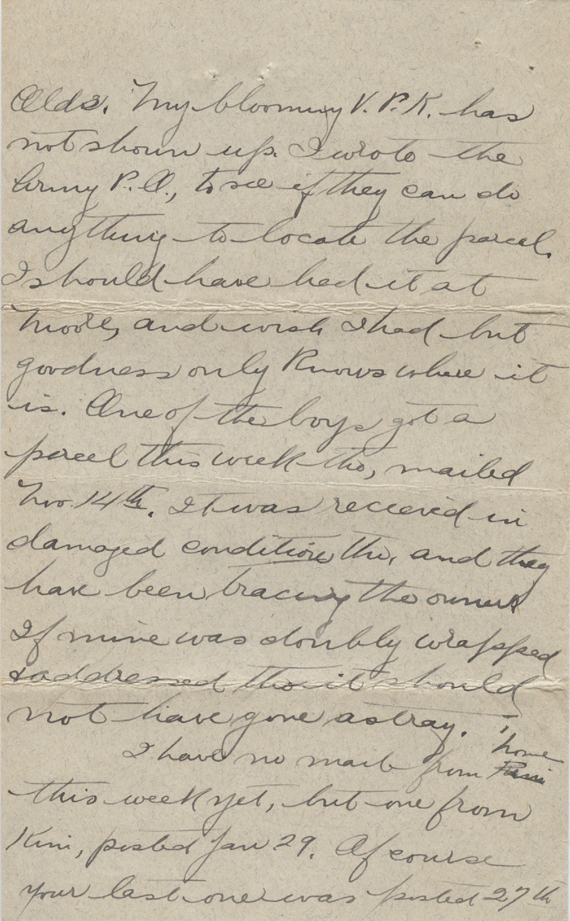 Olds. My blooming V.P.K. has
not shown up. I wrote the
Army P.O., to see if they can do
anything to locate the parcel.
I should have had it at
and wish I had but
goodness only knows where it
is. One of the boys got a
parcel this week tho, mailed
Nov. 14th. It was received in
damaged condition tho, and they
have been tracing the owner
If mine was doubly wrapped
& addressed tho it should
not have gone astray.
I have no mail from home
this week yet, but one from
Kini, posted Jan 29. Of course
your last one was posted 27th